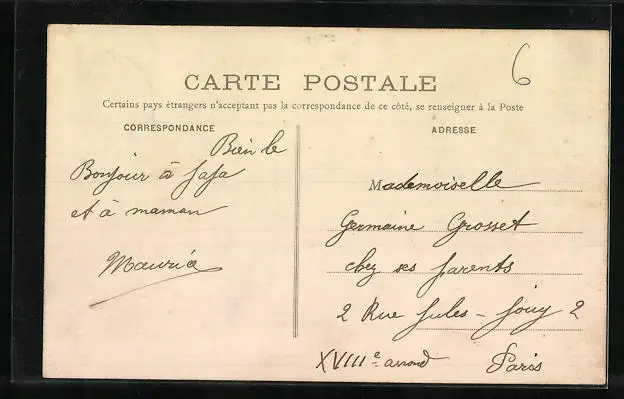 6
CARTE POSTALE
Certains pays étrangers n'acceptant pas la correspondance de ce côté, se renseigner à la Poste
CORRESPONDANCE
Bien le
Bonjour à Papa
et à maman
Maurice
ADRESSE
Mademoiselle
Germaine Grosset
chez ses parents
2 Rue Jules-Jouy 2
XVIIIe arrond Paris